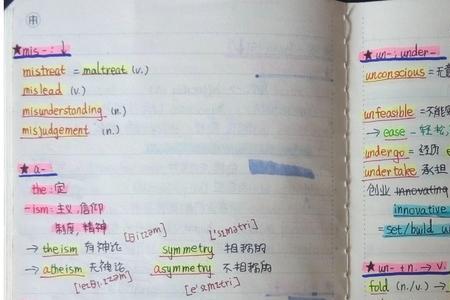 ★ mis - : ↓
mistreat = maltreat (v.)
mislead (v.)
misunderstanding (n.)
misjudgement (n.)
★ a -
the : 定
- ism : 主义, 信仰
制度, 精神
→ theism 有神论 [θiːɪzəm] symmetry 相称的 ['sɪmətri]
→ atheism 无神论 ['eɪθiːɪzəm] asymmetry 不相称的 [e'sɪmətri]
★ un - ; under -
unconscious = 无意
unfeasible = 不能
→ ease - 轻松,
undergo = 经历
undertake 承担
创业 innovating
innovative
= set/build
★ un - + n. → v.
fold (n./v.) →